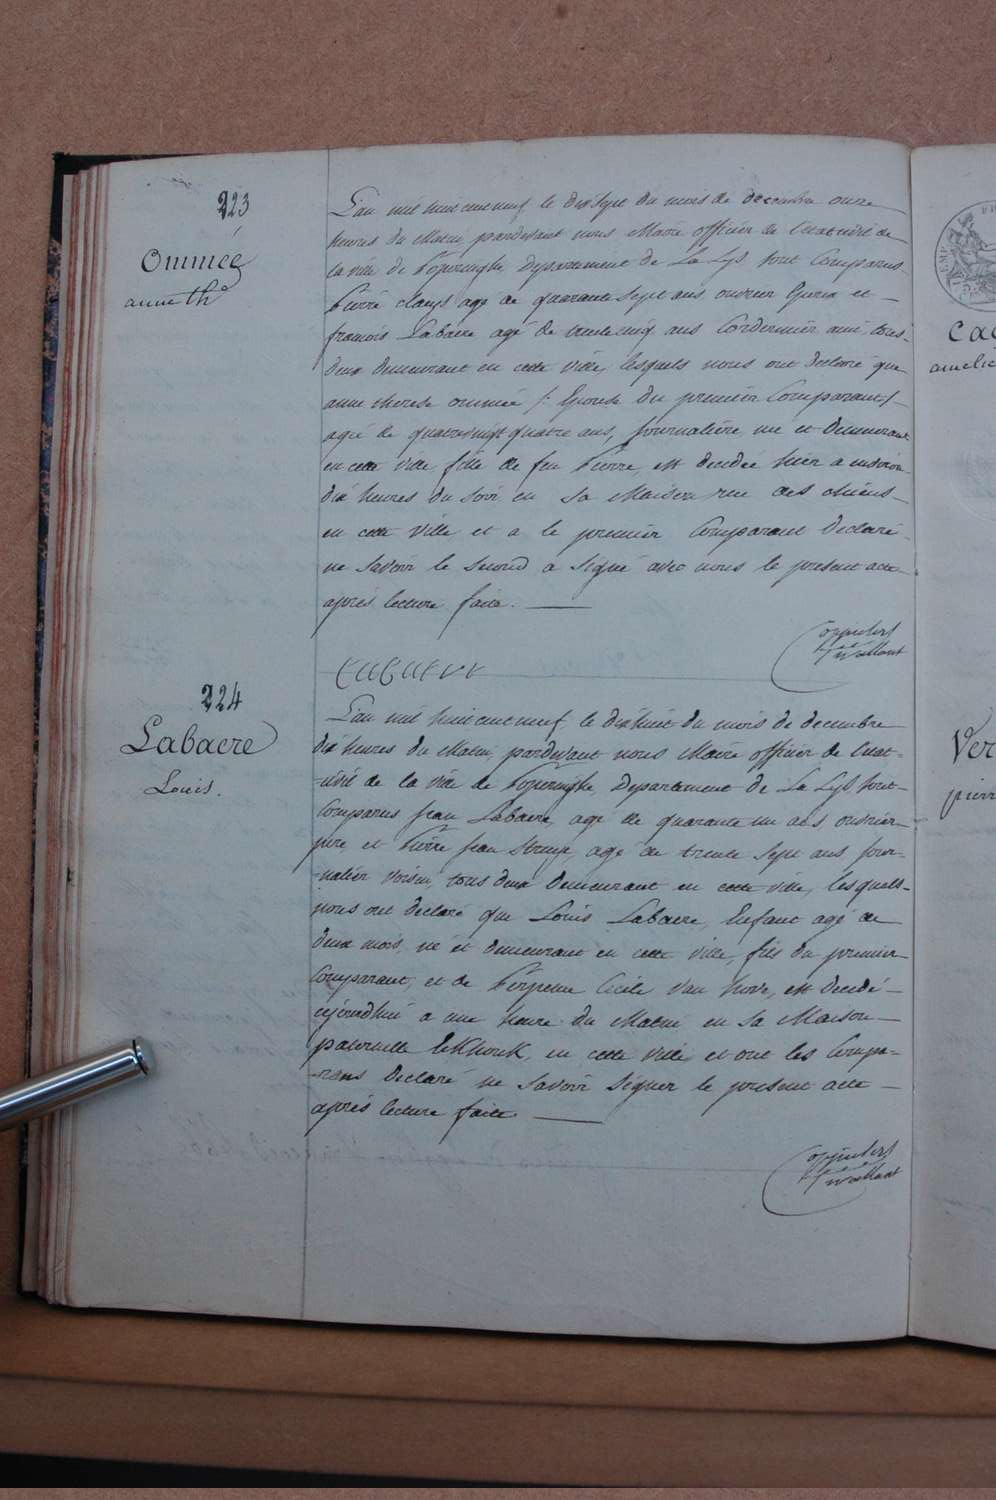 223
Ommeé
anne Th.e
L'an mil huit cent neuf le dix sept du mois de decembre onze
heures du Matin, pardevant nous Maire officier de l'etat civil de
la ville de Poperinghe departement de La Lys sont Comparus
Pierre Clays agé de quarante sept ans ouvrier Epoux et
françois Labaere agé de trente neuf ans Cordonnier ami, tous
deux demeurant en cette ville, lesquels nous ont declaré que
anne therese ommeé /: Epouse du premier Comparant/
ageé de quatrevingt quatre ans, journalière neé et demeurant
en cette ville fille de feu Pierre, est decedeé hier a environ
dix heures du soir en sa Maison rue des chiens
en cette ville et a le premier Comparant declaré
ne savoir le second a signé avec nous le present acte
après lecture faite.
Labaere
224
Labaere
Louis.
L'an mil huit cent neuf le dix huit du mois de decembre
dix heures du Matin, pardevant nous Maire officier de l'etat
civil de la ville de Poperinghe, Departement de La Lys sont
Comparus Jean Labaere, agé de quarante un ans ouvrier
père, et Pierre Jean agé de trente sept ans jour-
nalier voisin, tous deux demeurant en cette ville, lesquels
nous ont declaré que Louis Labaere, Enfant agé de
deux mois, né et demeurant en cette ville, fils du premier
Comparant, et de Perpetue Cecile Van hove, est decedé
aujourdhui a une heure du Matin en sa Maison
paternelle en cette ville et ont les Compa-
rans declaré ne savoir signer le present acte
après lecture faite
Cas
amelie
Ver
pierr